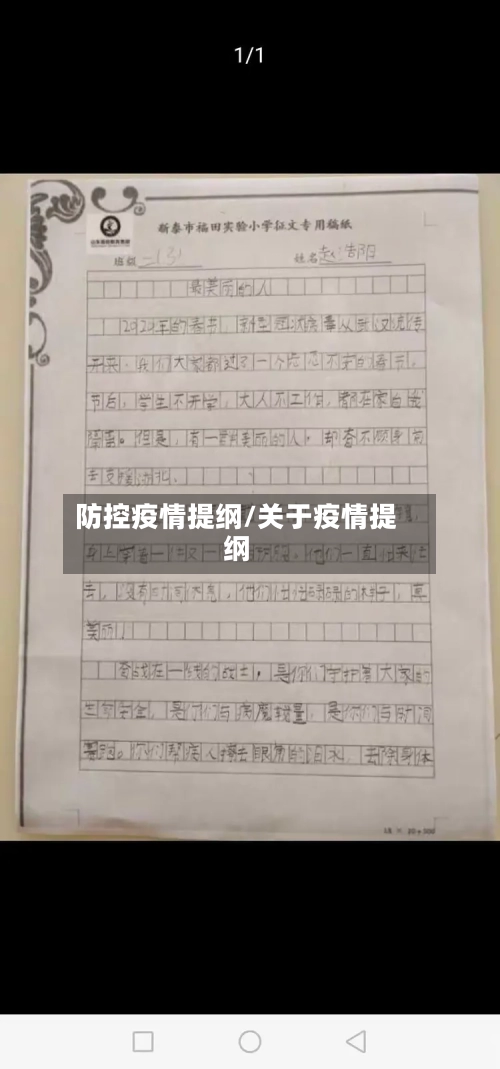 1/1
新泰市福田实验小学征文专用稿纸
班级 二(3) 姓名 赵浩阳
最美丽的人
2020年的春节，新型冠状病毒从武汉流传
开来。我们大家都过了一个忐忑不安的春节。
节后，学生不开学，大人不工作，都在家自我
隔离。但是，有一群美丽的人，却奋不顾身前
去支援湖北。
防控疫情提纲/关于疫情提
纲
身上穿着一件又一件防护服。他们一直忙来忙
去，没有时间休息，他们
美丽！
奋战在一线的战士，是你们守护着大家的
生命安全，是你们与病魔较量，是你们与时间
赛跑。你们帮病人擦去眼角的泪水，去除身体